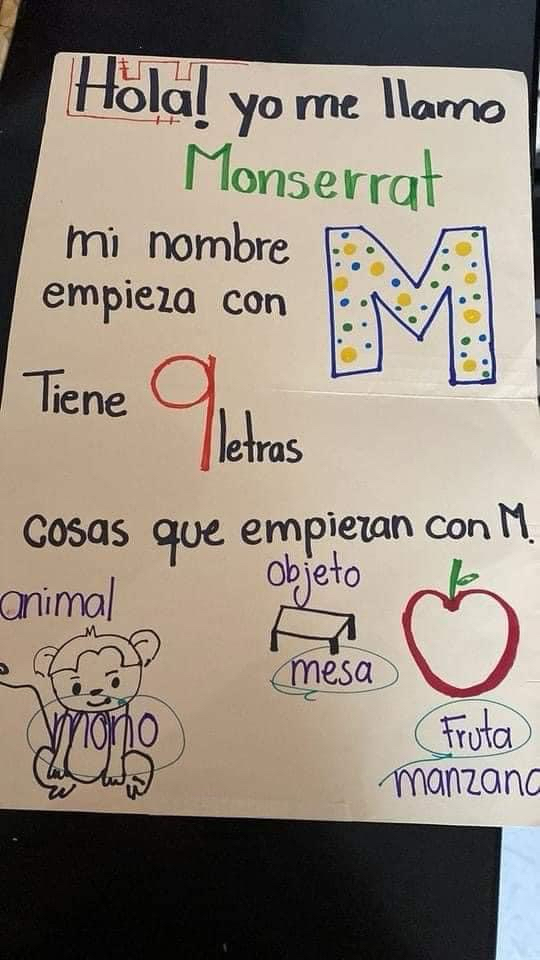 Hola! yo me llamo
Monserrat
mi nombre
empieza con M
Tiene 9 letras
cosas que empiezan con M.
animal
mono
objeto
mesa
Fruta
manzana